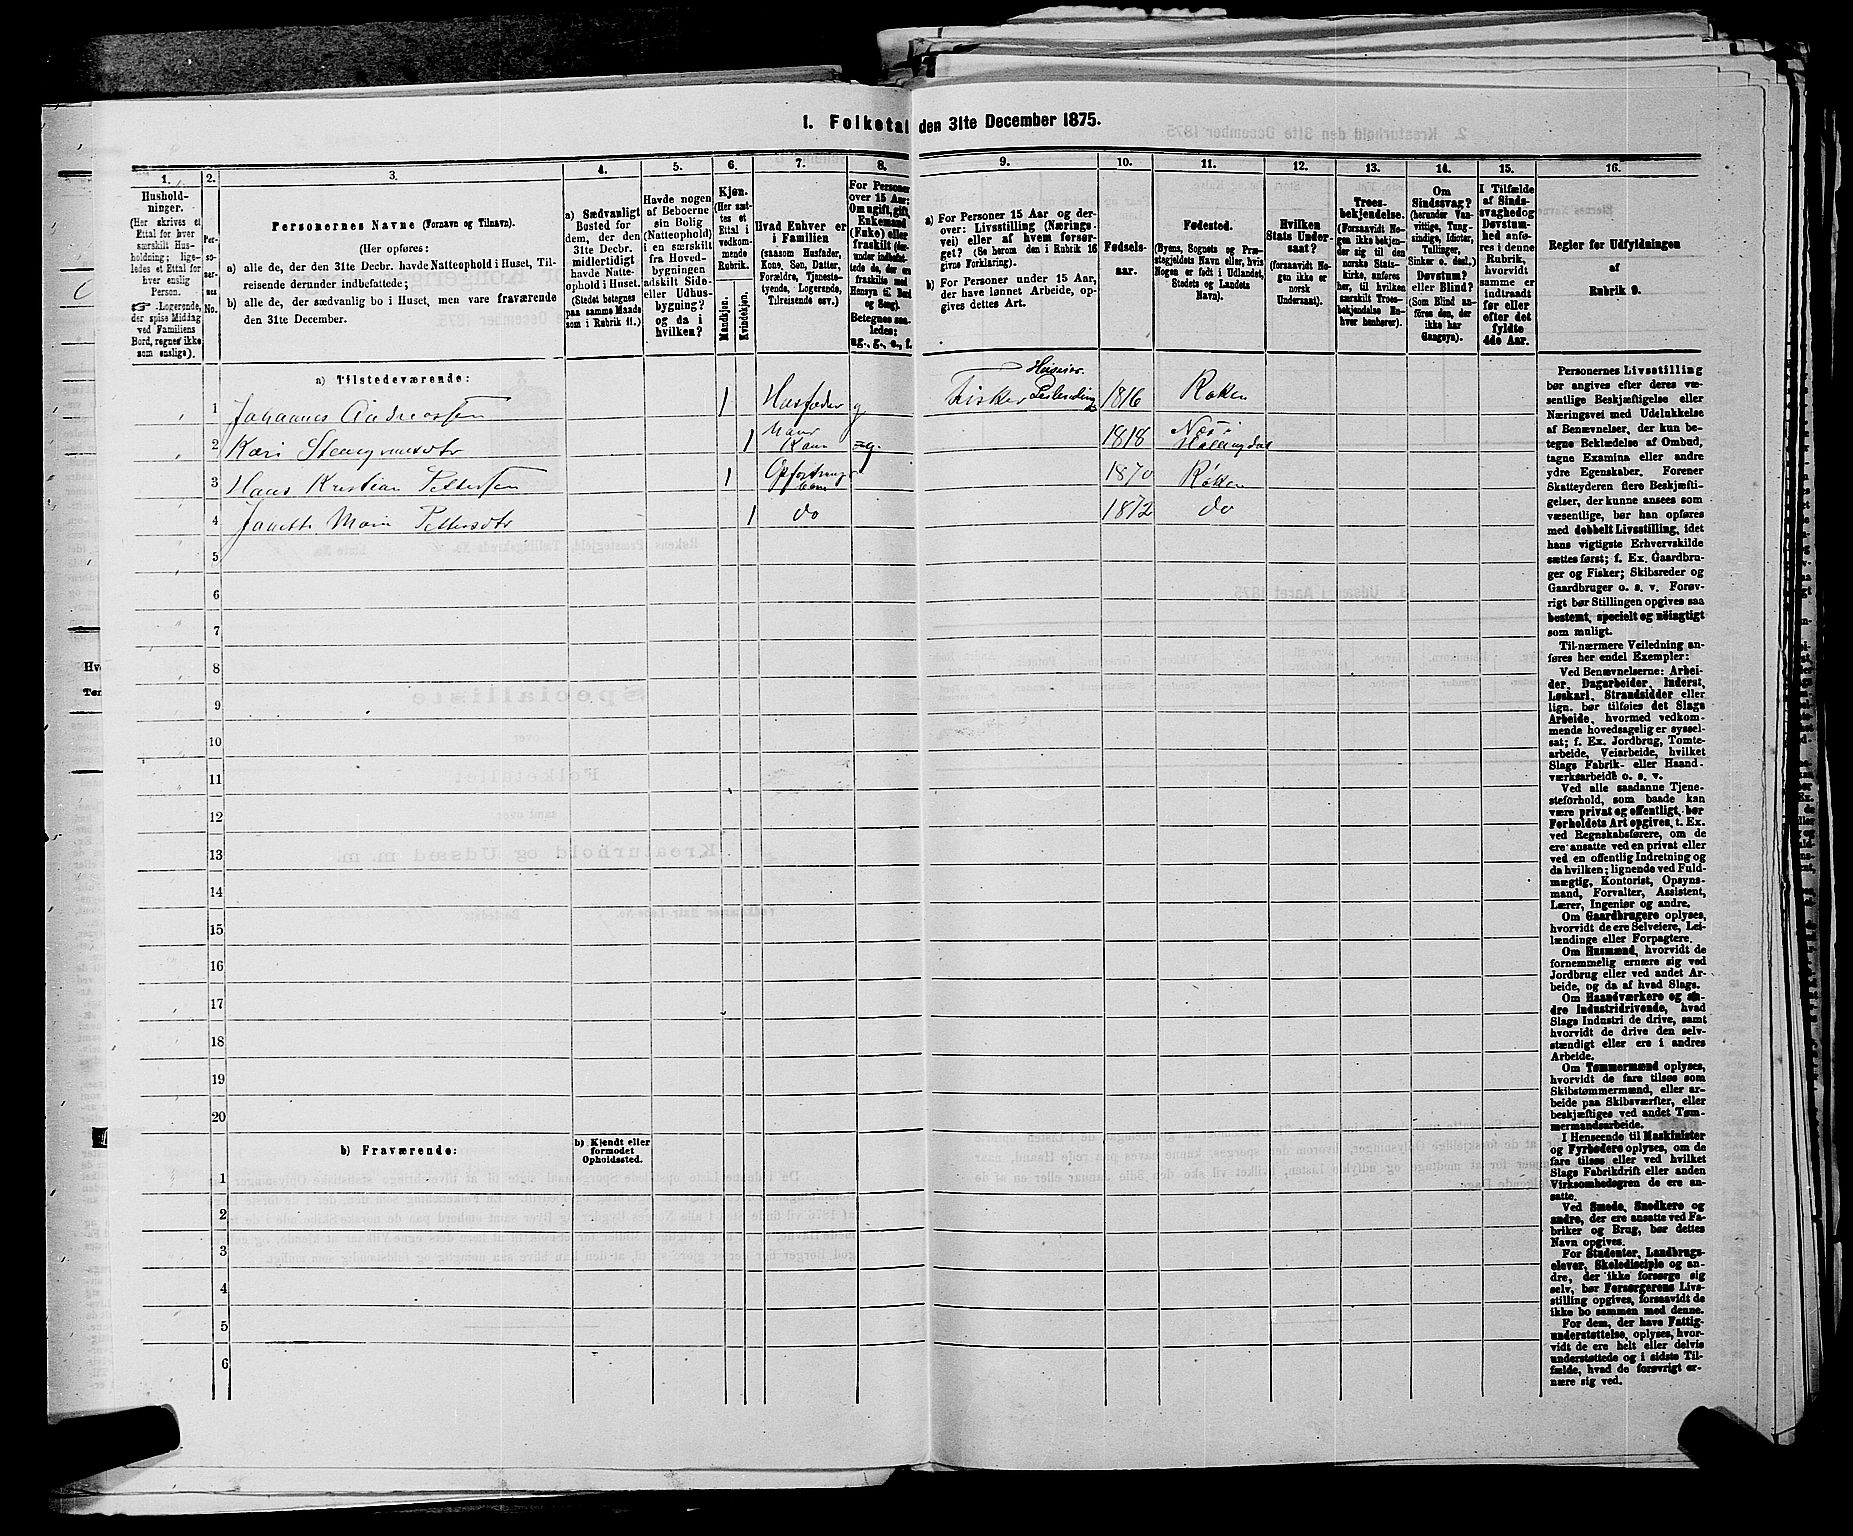 1. Folketal den 31te December 1875.
1. 2. 3. 4. 5. 6. 7. 8. 9. 10. 11. 12. 13. 14. 15. 16.
Hushold-
ninger.
(Her skrives et
Ettal for hver
særskilt Hus-
holdning; lige-
ledes et Ettal for
hver enslig
Person.
☞ Logerende,
der spise Middag
ved Familiens
Bord, regnes ikke
som enslige).
Per-
so-
ner-
nes
No.
Personernes Navne (Fornavn og Tilnavn).
(Her opføres:
a) alle de, der den 31te Decbr. havde Natteophold i Huset, Til-
reisende derunder indbefattede;
b) alle de, der sædvanlig bo i Huset, men vare fraværende
den 31te December.
a) Sædvanligt
Bosted for
dem, der den
31te Decbr.
midlertidigt
havde Natte-
ophold i Huset.
(Stedet betegnes
paa samme Maade
som i Rubrik 11.)
Havde nogen
af Beboerne
sin Bolig
(Natteophold)
i en særskilt
fra Hoved-
bygningen
adskilt Side-
eller Udhus-
bygning?
og da i
hvilken?
Kjøn.
(Her sæt-
tes et
Ettal i
vedkom-
mende
Rubrik.
Mandkjøn.
Kvindekjøn.
Hvad Enhver er
i Familien
(saasom Husfader,
Kone, Søn, Datter,
Forældre, Tjeneste-
tyende, Logerende,
Tilreisende osv.)
For Personer
over 15 Aar:
Om ugift, gift,
Enkemand
(Enke) eller
fraskilt (der-
under indbefat-
tede de, der ere
fraskilte med
Hensyn til Bord
og Seng).
Betegnes saa-
ledes:
ug., g., e., f.
a) For Personer 15 Aar og der-
over: Livsstilling (Nærings-
vei) eller af hvem forsør-
get? (Se herom den i Rubrik 16
givne Forklaring).
b) For Personer under 15 Aar,
der have lønnet Arbeide, op-
gives dettes Art.
Fødsels-
aar.
Fødested.
(Byens, Sognets og Præ-
stegjeldets Navn eller, hvis
Nogen er født i Udlandet,
Stedets og Landets
Navn).
Hvilken
Stats Under-
saat?
(forsaavidt No-
gen ikke er
norsk
Undersaat).
Troes-
bekjendelse.
(Forsaavidt No-
gen ikke bekjen-
der sig til den
norske Stats-
kirke, anføres
her, til hvilken
særskilt Troes-
bekjendelse En-
hver henhører).
Om
Sindssvag?
(herunder Van-
vittige, Tung-
sindige, Idioter,
Tullinger,
Sinker o. desl.)
Døvstum?
eller Blind?
(Som Blind an-
føres den, der
ikke har
Gangsyn).
I Tilfælde
af Sinds-
svaghed og
Døvstum-
hed anfø-
res i denne
Rubrik,
hvorvidt
samme er
indtraadt
før eller
efter det
fyldte
4de Aar.
Regler for Udfyldningen
af
Rubrik 9.
a) Tilstedeværende:
1 Johannes Andreassen 1 Husfader g Fisker Huseier 1816 Røken
2 Kari 1 Kone g. 1818 Næs i Hallingdal
3 Hans Kristian Pettersen 1 1870 Røken
4 1 do 1872 do
5
6
7
8
9
10
11
12
13
14
15
16
17
18
19
20
b) Fraværende:
b) Kjendt eller
formodet
Opholdssted.
1
2
3
4
5
6
Personernes Livsstilling
bør angives efter deres væ-
sentlige Beskjæftigelse eller
Næringsvei med Udelukkelse
af Benævnelser, der kun be-
tegne Beklædelse af Ombud,
tagne Examina eller andre
ydre Egenskaber. Forener
Skatteyderen flere Beskjæfti-
gelser, der kunne ansees som
væsentlige, bør han opføres
med dobbelt Livsstilling, idet
hans vigtigste Erhvervskilde
sættes først; f. Ex. Gaardbru-
ger og Fisker; Skibsreder og
Gaardbruger o. s. v. Forøv-
rigt bør Stillingen opgives saa
bestemt, specielt og nöiagtigt
som muligt.
Til nærmere Veiledning an-
føres her endel Exempler:
Ved Benævnelserne: Arbei-
der, Dagarbeider, Inderst,
Løskarl, Strandsidder eller
lign. bør tilføies det Slags
Arbeide, hvormed vedkom-
mende hovedsagelig er syssel-
sat; f. Ex. Jordbrug, Tomte-
arbeide, Veiarbeide, hvilket
Slags Fabrik- eller Haand-
værksarbeide o. s. v.
Ved alle saadanne Tjene-
steforhold, som baade kan
være privat og offentligt, bør
Forholdets Art opgives, t. Ex.
ved Regnskabsførere, om de
ere ansatte ved en privat eller
ved en offentlig Indretning og
da hvilken; lignende ved Fuld-
mægtig, Kontorist, Opsyns-
mand, Forvalter, Assistent,
Lærer, Ingeniør og andre.
Om Gaardbrugere oplyses,
hvorvidt de ere Selveiere, Lei-
lændinge eller Forpagtere.
Om Husmænd, hvorvidt de
fornemmelig ernære sig ved
Jordbrug eller ved andet Ar-
beide, og da af hvad Slags.
Om Haandværkere og an-
dre Industridrivende, hvad
Slags Industri de drive, samt
hvorvidt de drive den selv-
stændigt eller ere i andres
Arbeide.
Om Tømmermænd oplyses,
hvorvidt de fare tilsøs som
Skibstømmermænd, eller ar-
beide paa Skibsværfter, eller
beskjæftiges ved andet Tøm-
mermandsarbeide.
I Henseende til Maskinister
og Fyrbødere oplyses, om de
fare tilsøs eller ved hvilket
Slags Fabrikdrift eller anden
Virksomhedsgren de ere an-
satte.
Ved Smede, Snedkere og
andre, der ere ansatte ved Fa-
briker og Brug, bør dettes
Navn opgives.
For Studenter, Landbrugs-
elever, Skoledisciple og an-
dre, der ikke forsørge sig
selv, bør Forsørgerens Livs-
stilling opgives, forsaavidt de
ikke bo sammen med denne.
For dem, der have Fattig-
understøttelse, oplyses, hvor-
vidt de ere helt eller delvis
understøttede og i sidste Til-
fælde, hvad de forøvrigt er-
nære sig ved.